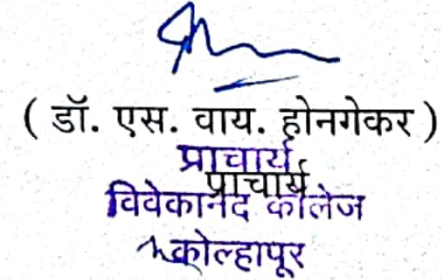 ( डॉ. एस. वाय. होनगेकर )
प्राचार्य
प्राचार्य
विवेकानंद कॉलेज
कोल्हापूर